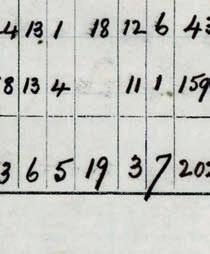 4 13 1 18 12 6 43
8 13 4 11 1 159
3 6 5 19 3 7 202